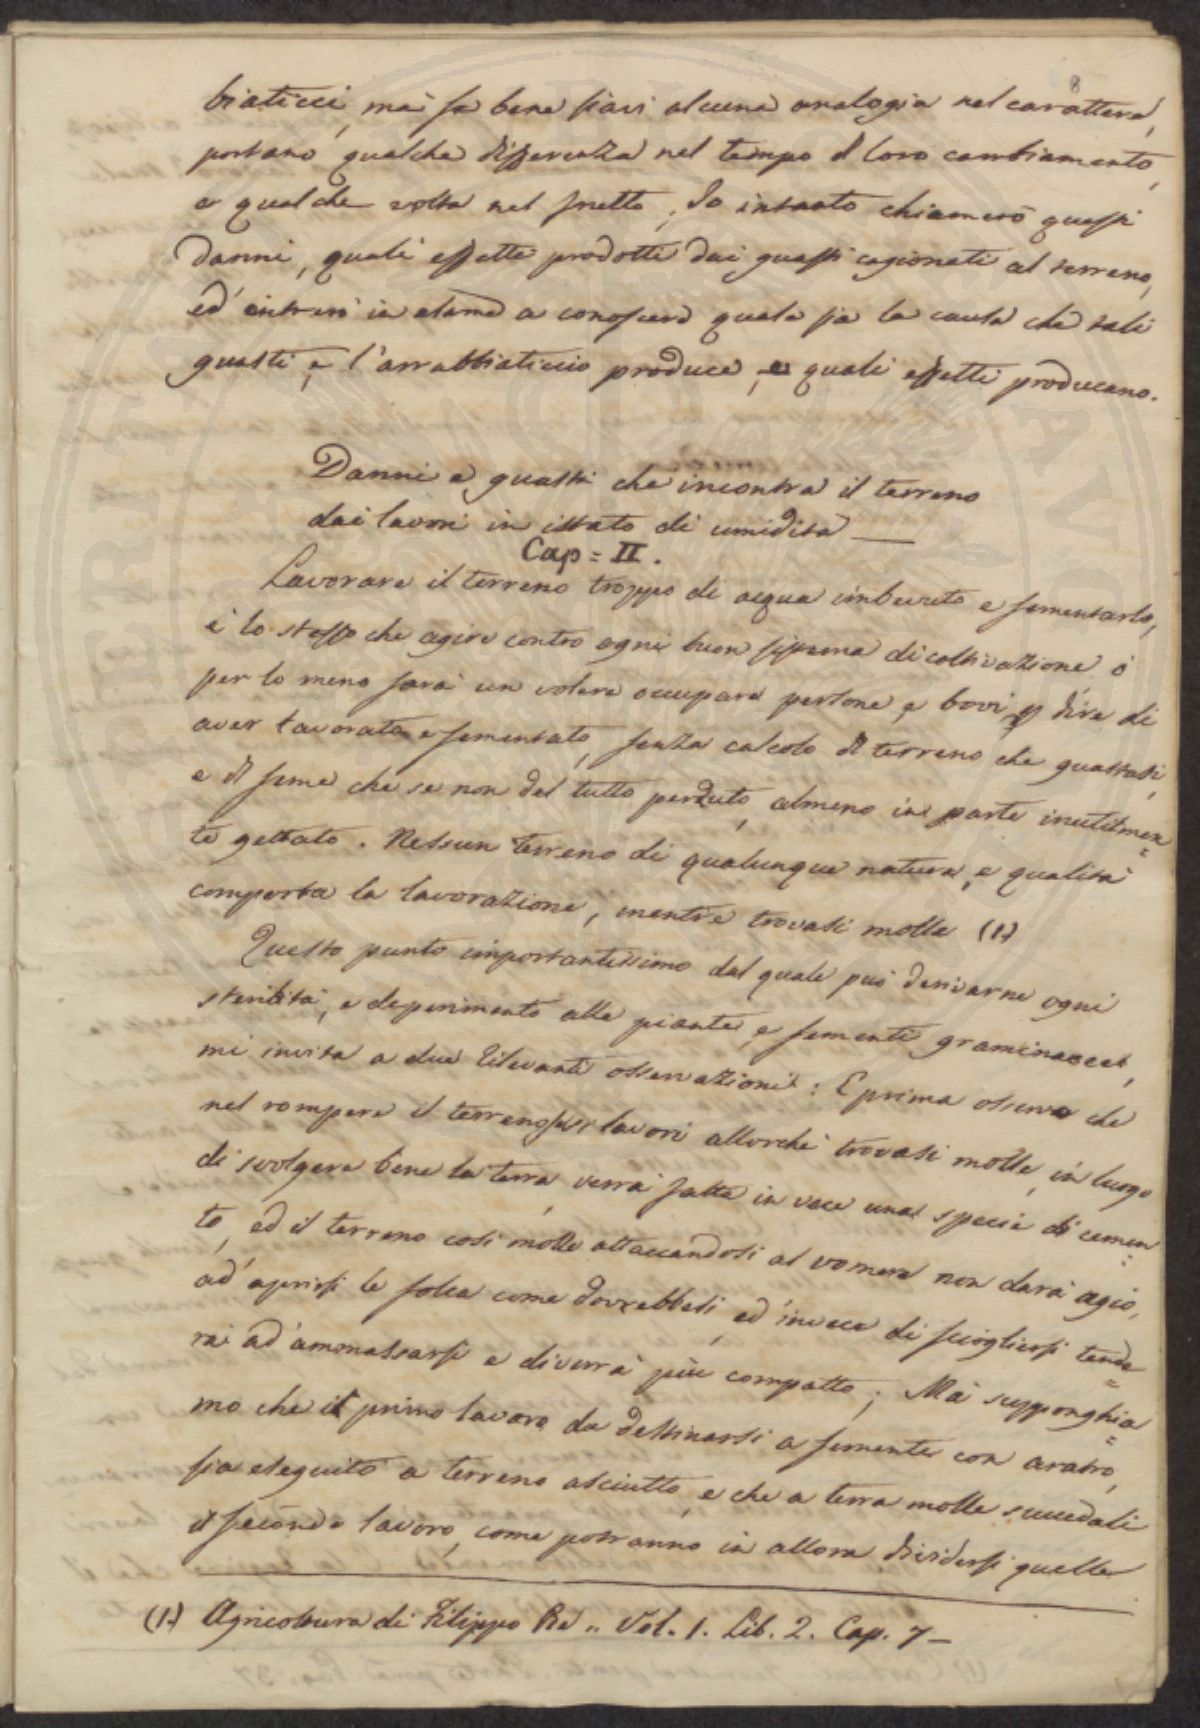 8
biaticci, mà se bene siavi alcuna analogia nel carattere,
portano qualche differenza nel tempo d loro cambiamento,
e qualche volta nel frutto, Io intanto chiamerò questi
danni, quali effetti prodotti dai guasti cagionati al terreno,
ed' entrerò in esame a conoscere quale sia la causa che tali
guasti, e l'arrabbiaticcio produce, e quali effetti producano.
Danni e guasti che incontra il terreno
dai lavori in istato di umidità
Cap = II.
Lavorare il terreno troppo di acqua imbevuto e sementarlo,
è lo stesso che agire contro ogni buon sistema di coltivazione ò
per lo meno sarà un volere occupare persone, e bovi, dire di
aver lavorato e sementato, senza calcolo d terreno che guastasi,
e d seme che se non del tutto perduto, almeno in parte inutilmen=
te gettato. Nessun terreno di qualunque natura, e qualità
comporta la lavorazione, mentre trovasi molle (1)
Questo punto importantissimo dal quale può derivarne ogni
sterilità, e deperimento alle piante, e sementi graminacee,
mi invita a due rilevanti osservazioni: E prima osservo che
nel rompere il terreno lavori allorchè trovasi molle, in luogo
di svolgere bene la terra, verrà fatta in vece una specie di cemen=
to, ed il terreno così molle attaccandosi al vomere non darà agio,
ad' aprirsi le solca come dovrebbesi, ed' invece di sciogliersi tende=
rà ad' ammassarsi e diverrà più compatto; Mà supponghia=
mo che il primo lavoro da destinarsi a semente con aratro,
sia eseguito a terreno asciutto, e che a terra molle succedali
il secondo lavoro, come potranno in allora dividersi quelle
(1) Agricoltura di Filippo Re „ Vol. 1. Lib. 2. Cap. 7 —